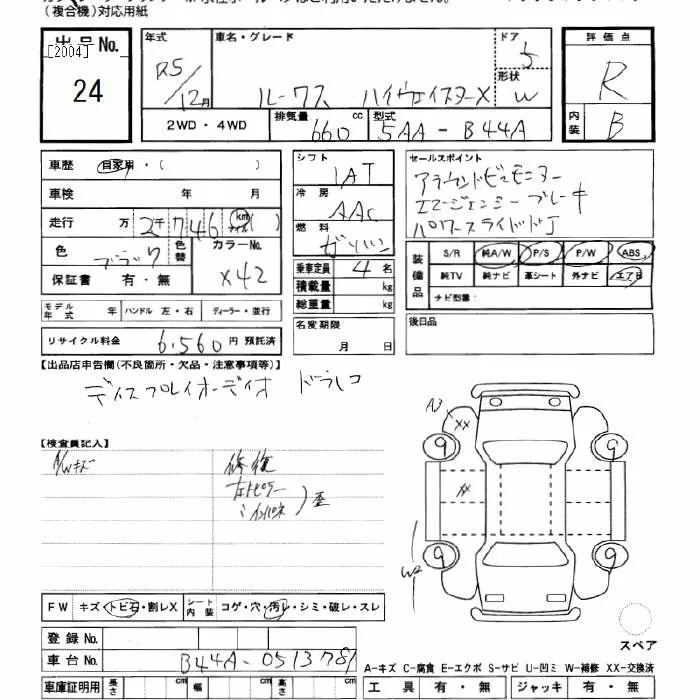 (複合機)対応用紙
出品No.
[2004]
24
年式
R5/12月
車名・グレード
ルークス ハイウェイスターX
ドア
5
形状
W
評価点
R
内装
B
2WD・4WD
排気量
660 cc
型式
5AA-B44A
車歴 自家用・( )
車検 年 月
走行 万 2千746 km マイル ( )
色 ブラック 色替
カラーNo.
X42
保証書 有・無
モデル年式 ハンドル 左・右 ディーラー・並行
リサイクル料金 6,560 円 預託済
シフト
IAT
冷房
AAC
燃料
ガソリン
乗車定員 4 名
積載量 kg
総重量 kg
名変期限
月 日
セールスポイント
アラウンドビューモニター
エマージェンシーブレーキ
パワースライドドア
装備品
S/R 純A/W P/S P/W ABS
純TV 純ナビ 革シート 外ナビ エアB
ナビ型番:
後日品
【出品店申告欄(不良箇所・欠品・注意事項等)】
ディスプレイオーディオ ドラレコ
【検査員記入】
A/Wキズ 修復
左トピラー
インパネ
歪
A3
XX
9
9
XX
9
9
W2
FW キズ・トビ石・割レX シート内装 コゲ・穴・汚レ・シミ・破レ・スレ
登録No.
車台No. B44A-0513781
車庫証明用 長さ cm 幅 cm 高さ cm
スペア
A-キズ C-腐食 E-エクボ S-サビ U-凹ミ W-補修 XX-交換済
工具 有・無 ジャッキ 有・無